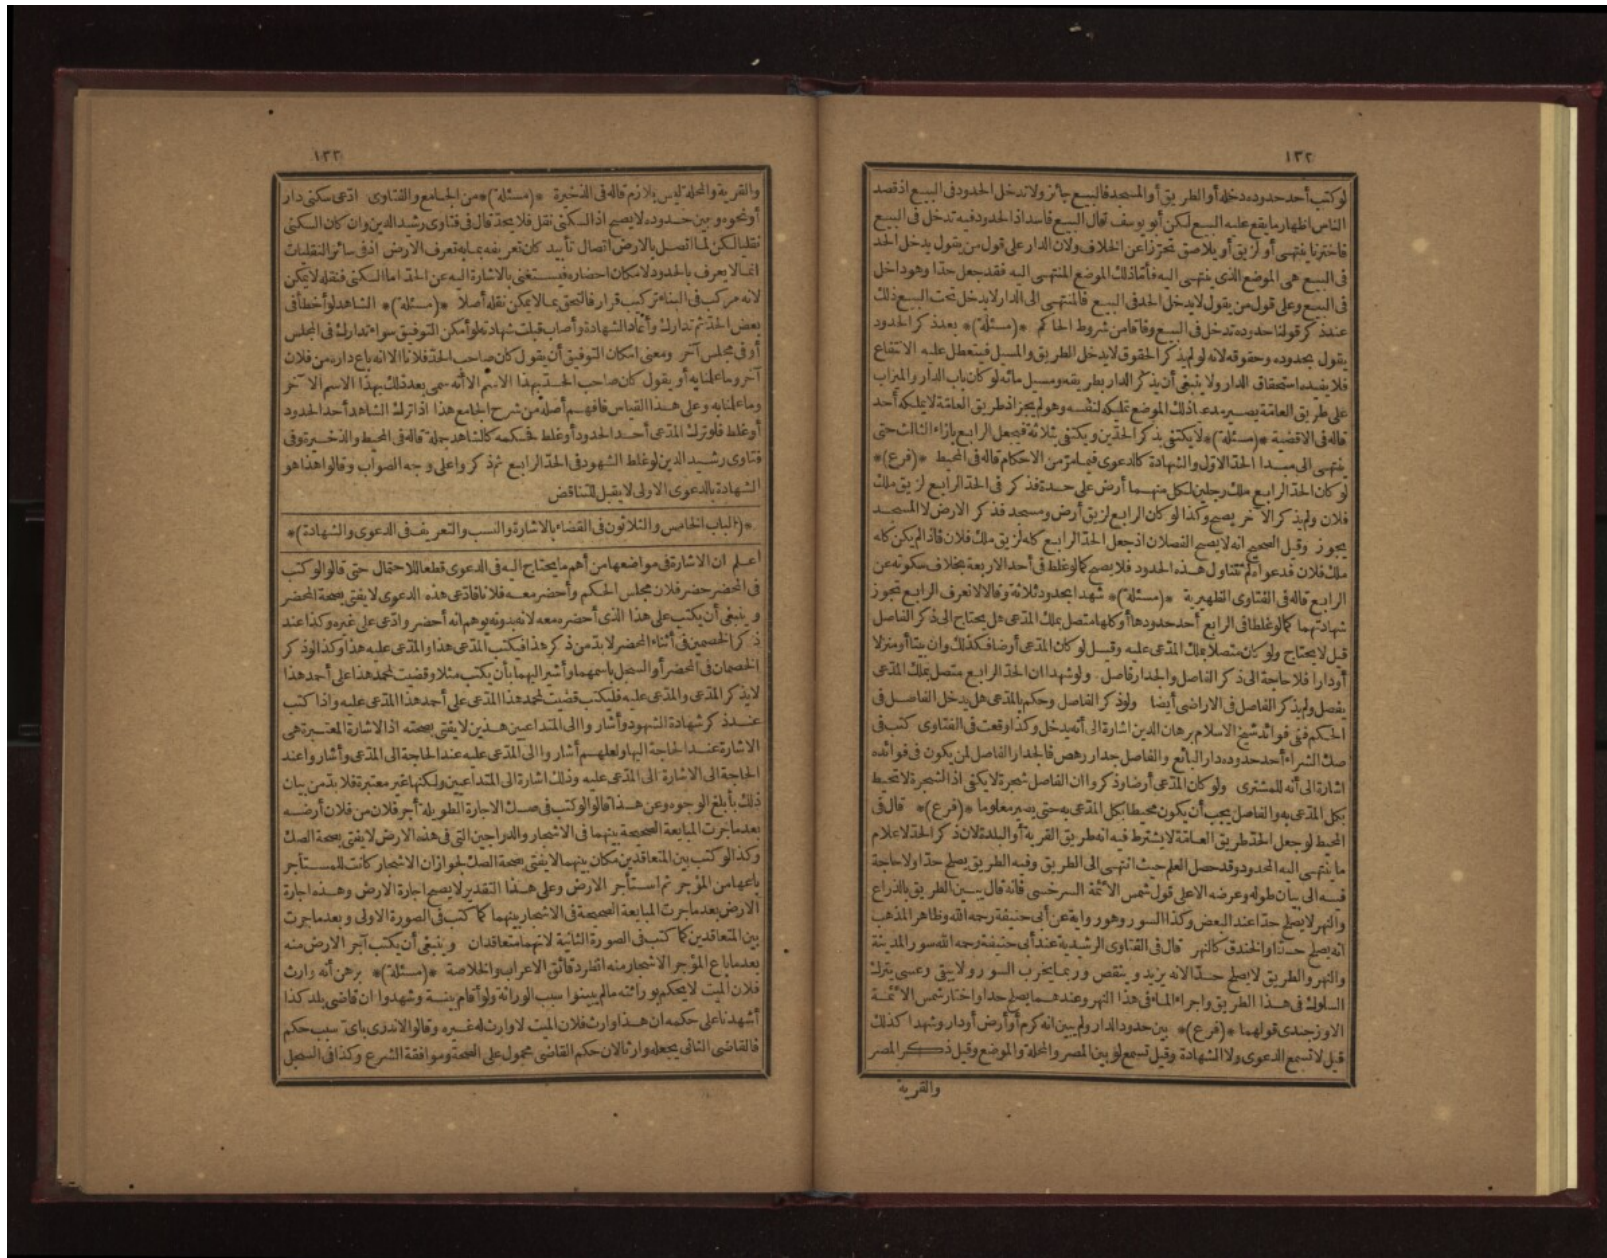 ١٣٢
لو كتب أحد حدوده دخلة أو الطريق أو المسجد فالبيع جائز ولا تدخل الحدود فى البيع اذ قصد
الناس اظهار ما يقع عليه البيع لكن أبو يوسف قال البيع فاسد اذ الحدود فيه تدخل فى البيع
فاخترنا ينتهى أو لزيق أو يلاصق تحرزا عن الخلاف ولان الدار على قول من يقول يدخل الحد
فى البيع هى الموضع الذى ينتهى اليه فأما ذلك الموضع المنتهى اليه فقد جعل حدا وهو داخل
فى البيع وعلى قول من يقول لا يدخل الحد فى البيع فالمنتهى الى الدار لا يدخل تحت البيع ذلك
عند ذكر قولنا حدوده تدخل فى البيع وفاقا من شروط الحاكم *(مسئلة)* بعد ذكر الحدود
يقول بحدوده وحقوقه لانه لو لم يذكر الحقوق لا يدخل الطريق والمسيل فيتعطل عليه الانتفاع
فلا يفيده استحقاق الدار ولا ينبغى أن يذكر الدار بطريقه ومسيل مائه لو كان باب الدار والميزاب
على طريق العامة يصير مدعيا ذلك الموضع تمليكه لنفسه وهو لم يجز اذ طريق العامة لا يملكه أحد
قاله فى الاقضية *(مسئلة)* لا يكتفى بذكر الحدين ويكتفى بثلاثة فيجعل الرابع بازاء الثالث حتى
ينتهى الى مبدا الحد الاول والشهادة كالدعوى فيما مر من الاحكام قاله فى المحيط *(فرع)*
لو كان الحد الرابع ملك رجلين لكل منهما أرض على حدة فذكر فى الحد الرابع لزيق ملك
فلان ولم يذكر الآخر يصح وكذا لو كان الرابع لزيق أرض ومسجد فذكر الارض لا المسجد
يجوز وقيل الصحيح انه لا يصح الفصلان اذ جعل الحد الرابع كله لزيق ملك فلان فاذا لم يكن كله
ملك فلان فدعواه لم تتناول هذه الحدود فلا يصح كما لو غلط فى أحد الاربعة بخلاف سكوته عن
الرابع قاله فى الفتاوى الظهيرية *(مسئلة)* شهدا بحدود ثلاثة وقالا لا نعرف الرابع تجوز
شهادتهما كما لو غلطا فى الرابع أحد حدودها أو كلها متصل بملك المدعى هل يحتاج الى ذكر الفاصل
قيل لا يحتاج ولو كان متصلا بملك المدعى عليه وقيل لو كان المدعى أرضا فكذلك وان بيتا أو منزلا
أو دارا فلا حاجة الى ذكر الفاصل والجدار فاصل ولو شهدا ان الحد الرابع متصل بملك المدعى
يفصل ولم يذكر الفاصل فى الاراضى أيضا ولو ذكر الفاصل وحكم بالمدعى هل يدخل الفاصل فى
الحكم ففى فوائد شيخ الاسلام برهان الدين اشارة الى أنه يدخل وكذا وقعت فى الفتاوى كتب فى
صك الشراء أحد حدوده دار البائع والفاصل جدار رهص فالجدار الفاصل لمن يكون فى فوائده
اشارة الى أنه للمشترى ولو كان المدعى أرضا وذكروا ان الفاصل شجرة لا يكفى اذ الشجرة لا تحيط
بكل المدعى به والفاصل يجب أن يكون محيطا بكل المدعى به حتى يصير معلوما *(فرع)* قال فى
المحيط لو جعل الحد طريق العامة لا يشترط فيه انه طريق القرية أو البلدة لان ذكر الحد لاعلام
ما ينتهى اليه المحدود وقد حصل العلم حيث انتهى الى الطريق وفيه الطريق يصلح حدا ولا حاجة
فيه الى بيان طوله وعرضه الاعلى قول شمس الائمة السرخسى فانه قال يبين الطريق بالذراع
والنهر لا يصلح حدا عند البعض وكذا السور وهو رواية عن أبى حنيفة رحمه الله وظاهر المذهب
انه يصلح حدا والخندق كالنهر قال فى الفتاوى الرشيدية عند أبى حنيفة رحمه الله سور المدينة
والنهر والطريق لا يصلح حدا لانه يزيد وينقص وربما يخرب السور ولا يبقى وعسى يترك
السلوك فى هذا الطريق واجراء الماء فى هذا النهر وعندهما يصلح حدا واختار شمس الائمة
الاوزجندى قولهما *(فرع)* بين حدود الدار ولم يبين انه كرم أو أرض أو دار وشهدا كذلك
قيل لا تسمع الدعوى ولا الشهادة وقيل تسمع لو بين المصر والمحلة والموضع وقيل ذكر المصر
والقرية
١٣٣
والقرية والمحلة ليس بلازم قاله فى الذخيرة *(مسئلة)* من الجامع والفتاوى ادعى سكنى دار
أو نحوه وبين حدوده لا يصح اذ السكنى نقل فلا يحد قال فى فتاوى رشيد الدين وان كان السكنى
نقليا لكن لما اتصل بالارض اتصال تأبيد كان تعريفه بما به تعرف الارض اذ فى سائر النقليات
انما لا يعرف بالحدود لامكان احضاره فيستغنى بالاشارة اليه عن الحد اما السكنى فنقله لا يمكن
لانه مركب فى البناء تركيب قرار فالتحق بما لا يمكن نقله أصلا *(مسئلة)* الشاهد لو أخطأ فى
بعض الحد ثم تدارك وأعاد الشهادة وأصاب قبلت شهادته لو أمكن التوفيق سواء تدارك فى المجلس
أو فى مجلس آخر ومعنى امكان التوفيق أن يقول كان صاحب الحد فلانا الا انه باع داره من فلان
آخر وما علمنا به أو يقول كان صاحب الحد بهذا الاسم الا أنه سمى بعد ذلك بهذا الاسم الآخر
وما علمنا به وعلى هذا القياس فافهم أصله من شرح الجامع هذا اذا ترك الشاهد أحد الحدود
أو غلط فلو ترك المدعى أحد الحدود أو غلط فحكمه كالشاهد جملة قاله فى المحيط والذخيرة وفى
فتاوى رشيد الدين لو غلط الشهود فى الحد الرابع ثم ذكروا على وجه الصواب وقالوا هذا هو
الشهادة بالدعوى الاولى لا يقبل للتناقض
*(الباب الخامس والثلاثون فى القضاء بالاشارة والنسب والتعريف فى الدعوى والشهادة)*
اعلم ان الاشارة فى مواضعها من أهم ما يحتاج اليه فى الدعوى قطعا للاحتمال حتى قالوا لو كتب
فى المحضر حضر فلان مجلس الحكم وأحضر معه فلانا فادعى هذه الدعوى لا يفتى بصحة المحضر
وينبغى أن يكتب على هذا الذى أحضره معه لانه بدونه يوهم انه أحضر وادعى على غيره وكذا عند
ذكر الخصمين فى أثناء المحضر لا بد من ذكر هذا فكتب المدعى هذا والمدعى عليه هذا وكذا لو ذكر
الخصمان فى المحضر أو السجل باسمهما وأشير اليهما بأن يكتب مثلا وقضيت لمحمد هذا على أحمد هذا
لا يذكر المدعى والمدعى عليه فليكتب قضيت لمحمد هذا المدعى على أحمد هذا المدعى عليه واذا كتب
عند ذكر شهادة الشهود وأشاروا الى المتداعيين هذين لا يفتى بصحته اذ الاشارة المعتبرة هى
الاشارة عند الحاجة اليها ولعلهم أشاروا الى المدعى عليه عند الحاجة الى المدعى وأشاروا عند
الحاجة الى الاشارة الى المدعى عليه وذلك اشارة الى المتداعيين ولكنها غير معتبرة فلا بد من بيان
ذلك بأبلغ الوجوه وعن هذا قالوا لو كتب فى صك الاجارة الطويلة أجر فلان من فلان أرضه
بعد ما جرت المبايعة الصحيحة بينهما فى الاشجار والدراجين التى فى هذه الارض لا يفتى بصحة الصك
وكذا لو كتب بين المتعاقدين مكان بينهما لا يفتى بصحة الصك لجواز ان الاشجار كانت للمستأجر
باعها من المؤجر ثم استأجر الارض وعلى هذا التقدير لا يصح اجارة الارض وهذه اجارة
الارض بعد ما جرت المبايعة الصحيحة فى الاشجار بينهما كما كتب فى الصورة الاولى وبعد ما جرت
بين المتعاقدين كما كتب فى الصورة الثانية لانهما متعاقدان وينبغى أن يكتب آجر الارض منه
بعد ما باع المؤجر الاشجار منه انظر دقائق الاعراب والخلاصة *(مسئلة)* برهن أنه وارث
فلان الميت لا يحكم بوراثته ما لم يبينوا سبب الوراثة ولو أقام بينة وشهدوا ان قاضى بلد كذا
أشهدنا على حكمه ان هذا وارث فلان الميت لا وارث له غيره وقالوا لا ندرى باى سبب حكم
فالقاضى الثانى يجعله وارثا لان حكم القاضى محمول على الصحة وموافقة الشرع وكذا فى السجل